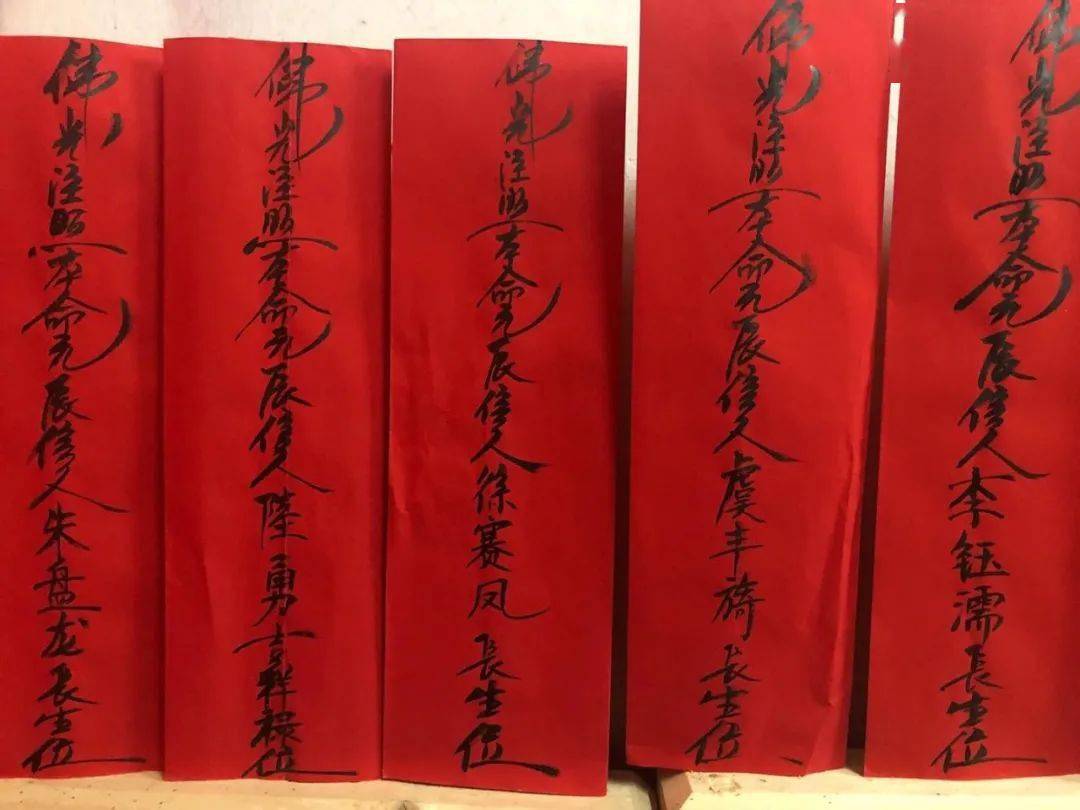 佛光注照本命元辰信人朱盘龙長生位
佛光注照本命元辰信人陸勇吉祥禄位
佛光注照本命元辰信人徐赛凤長生位
佛光注照本命元辰信人虞丰旖長生位
佛光注照本命元辰信人李钰濡長生位